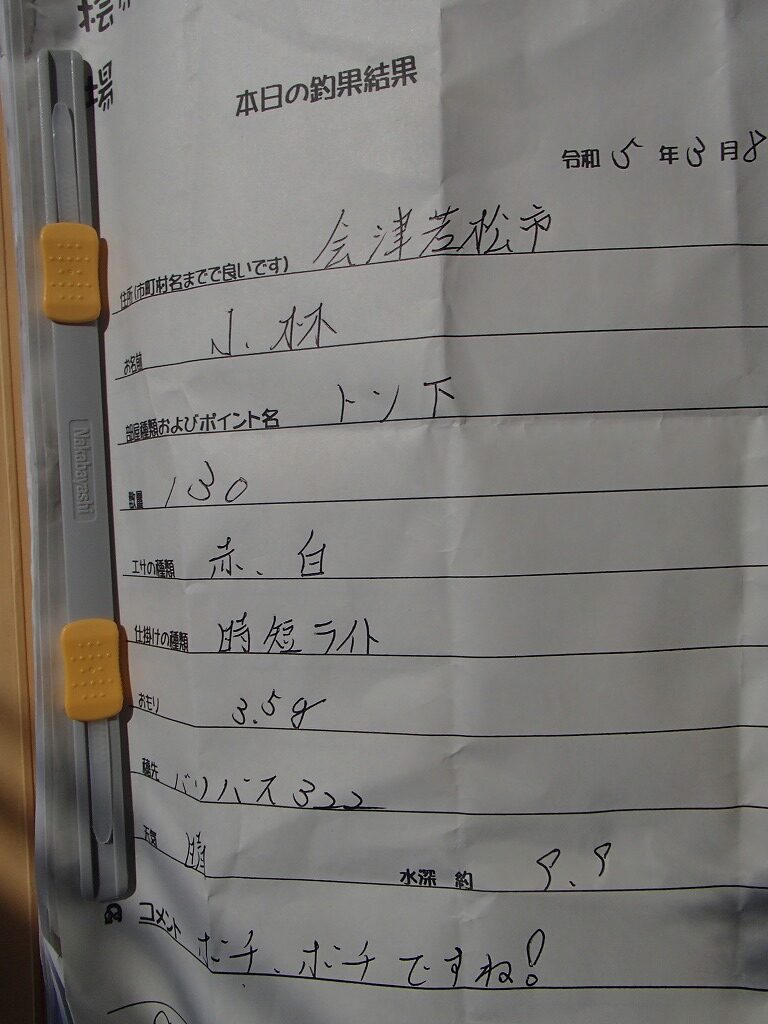 場
本日の釣果結果
令和 5 年 3 月 8
住所(市町村名までで良いです) 会津若松市
お名前 小林
部屋種類およびポイント名 トン下
数量 130
エサの種類 赤、白
仕掛けの種類 時短ライト
おもり 3.5g
穂先 バリバス322
天気 晴 水深 約 9.9
コメント ボチ、ボチですね!
Nakabayashi